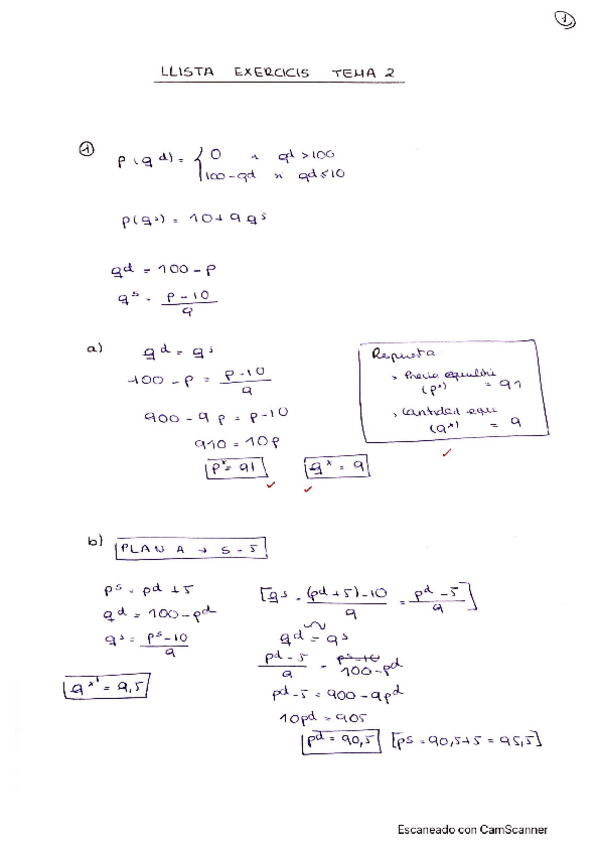 1
LLISTA EXERCICIS TEMA 2
1 p(qd) = { 0 qd > 100
100-qd qd ≤ 10
p(qs) = 10 + 9qs
qd = 100 - p
qs = p-10 / 9
a) qd = qs
100 - p = p-10 / 9
900 - 9p = p-10
910 = 10p
p* = 91 q* = 9
Repuesta
(p*) = 91
, Cantidad equi
(q*) = 9
b) PLAN A → S - 5
ps = pd + 5
qd = 100 - pd
qs = ps-10 / 9
q*' = 9,5
[qs = (pd+5)-10 / 9 = pd-5 / 9]
qd = qs
pd-5 / 9 = 100-pd
pd-5 = 900-9pd
10pd = 905
pd = 90,5 [ps = 90,5+5 = 95,5]
Escaneado con CamScanner